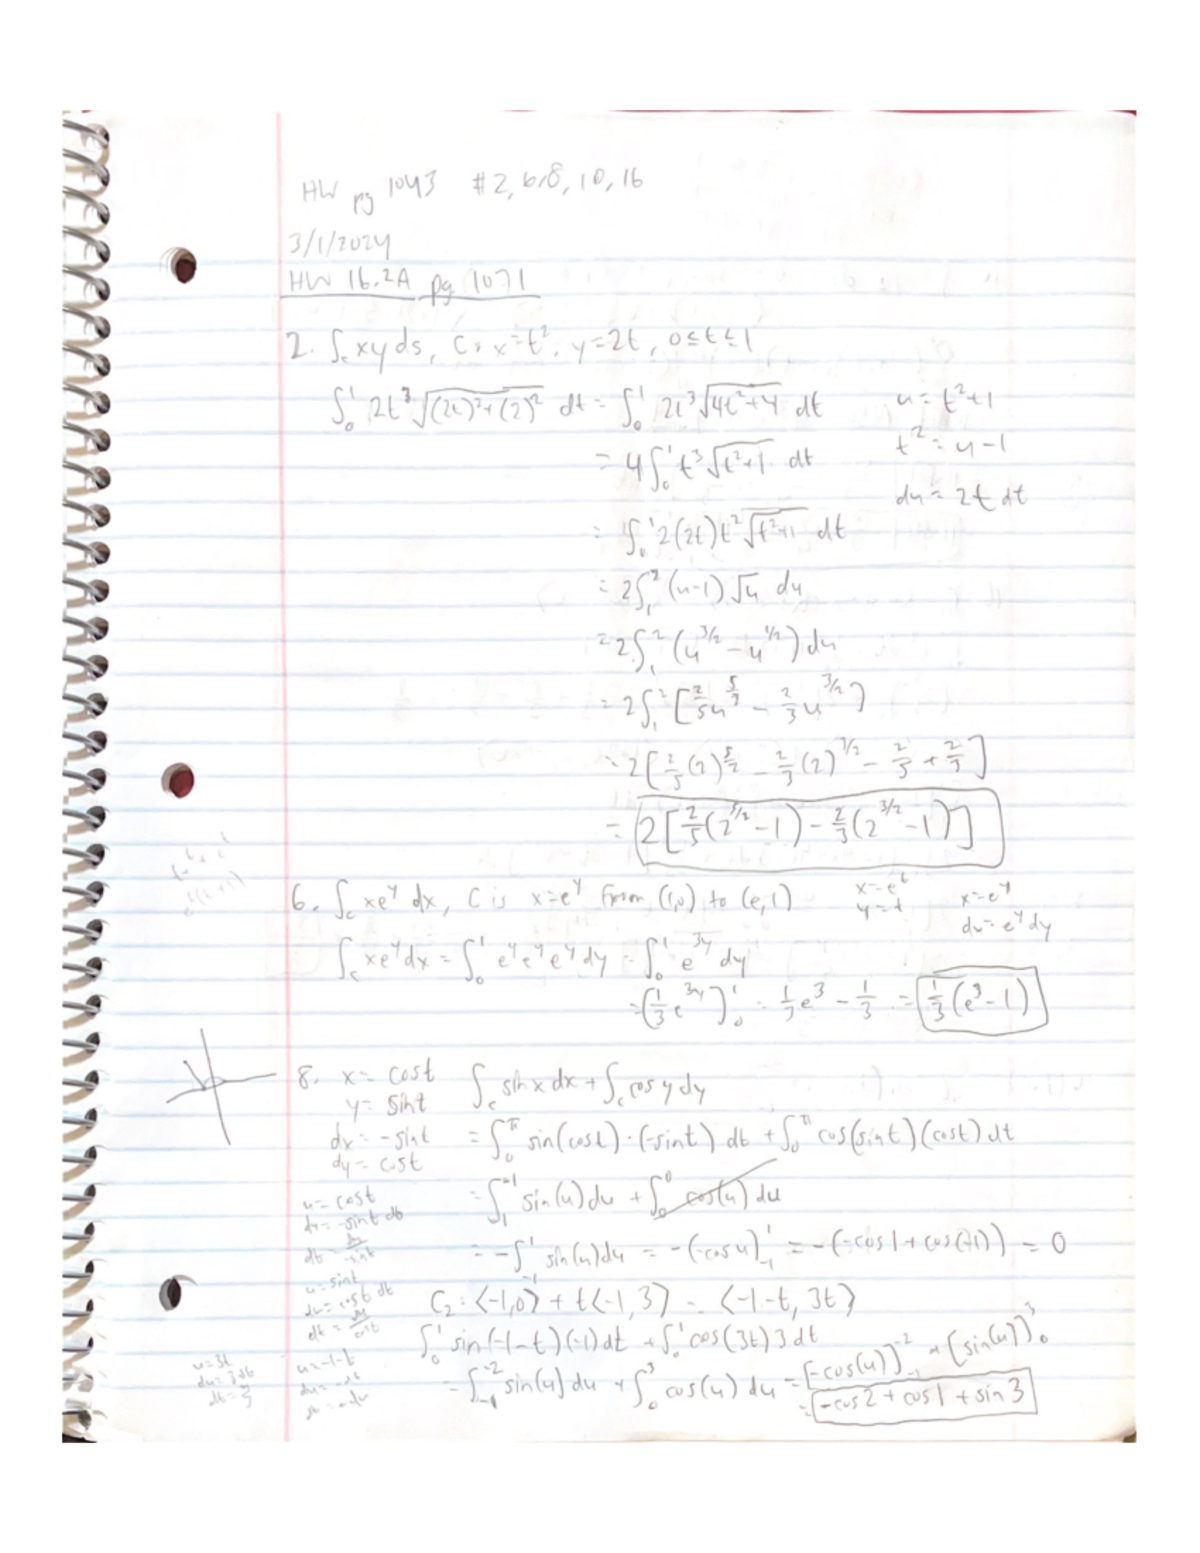 HW pg 1043 #2,6,8,10,16
3/1/2024
HW 16.2A pg 1071
2. ∫_c xy ds, C: x=t², y=2t, 0≤t≤1
∫₀¹ 2t³√((2t)²+(2)²) dt = ∫₀¹ 2t³√(4t²+4) dt
u = t²+1
= 4∫₀¹ t³√(t²+1) dt
t² = u-1
du = 2t dt
= ∫₀¹ 2(2t)t²√(t²+1) dt
= 2∫₁² (u-1)√u du
= 2∫₁² (u^(3/2) - u^(1/2)) du
= 2∫₁² [2/5 u^(5/2) - 2/3 u^(3/2)]
= 2[2/5 (2)^(5/2) - 2/3 (2)^(3/2) - 2/5 + 2/3]
= 2[2/5(2^(5/2) - 1) - 2/3(2^(3/2) - 1)]
6. ∫_c xe^y dx, C is x=e^y from (1,0) to (e,1)
x=e^t
y=t
x=e^y
dx=e^y dy
∫_c xe^y dx = ∫₀¹ e^y e^y e^y dy = ∫₀¹ e^(3y) dy
= (1/3 e^(3y)]₀¹ = 1/3 e³ - 1/3 = 1/3(e³-1)
8. x = cost ∫_c sin x dx + ∫_c cos y dy
y = sint
dx = -sint = ∫₀^π sin(cost)·(-sint) dt + ∫₀^π cos(sint)(cost) dt
dy = cost
u = cost = ∫₁^-1 sin(u) du + ∫₀⁰ cos(u) du
du = -sint dt
dt = du/-sint = -∫₋₁¹ sin(u) du = -(-cos u)₋₁¹ = -(-cos 1 + cos(-1)) = 0
u = sint
du = cost dt
dt = du/cost
C₂: <-1,0> + t<-1,3> = <-1-t, 3t>
∫₀¹ sin(-1-t)(-1) dt + ∫₀¹ cos(3t) 3 dt
u=3t
du=3dt
u=-1-t
du=-dt
dt=-du
= ∫₋₁^-2 sin(u) du + ∫₀³ cos(u) du = [-cos(u)]₋₁^-2 + [sin(u)]₀³
= -cos 2 + cos 1 + sin 3